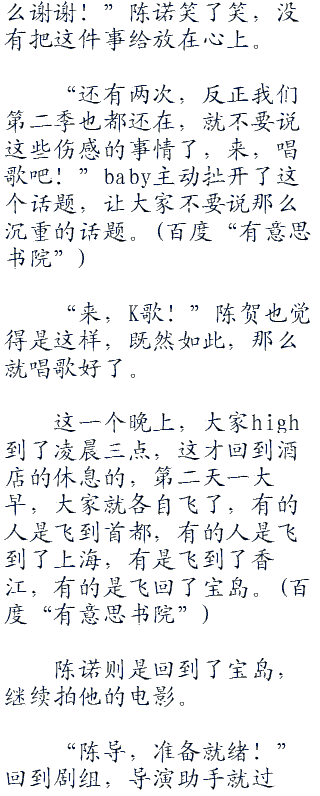 么谢谢！”陈诺笑了笑，没
有把这件事给放在心上。
“还有两次，反正我们
第二季也都还在，就不要说
这些伤感的事情了，来，唱
歌吧！”baby主动扯开了这
个话题，让大家不要说那么
沉重的话题。(百度“有意思
书院”)
“来，K歌！”陈贺也觉
得是这样，既然如此，那么
就唱歌好了。
这一个晚上，大家high
到了凌晨三点，这才回到酒
店的休息的，第二天一大
早，大家就各自飞了，有的
人是飞到首都，有的人是飞
到了上海，有是飞到了香
江，有的是飞回了宝岛。(百
度“有意思书院”)
陈诺则是回到了宝岛，
继续拍他的电影。
“陈导，准备就绪！”
回到剧组，导演助手就过